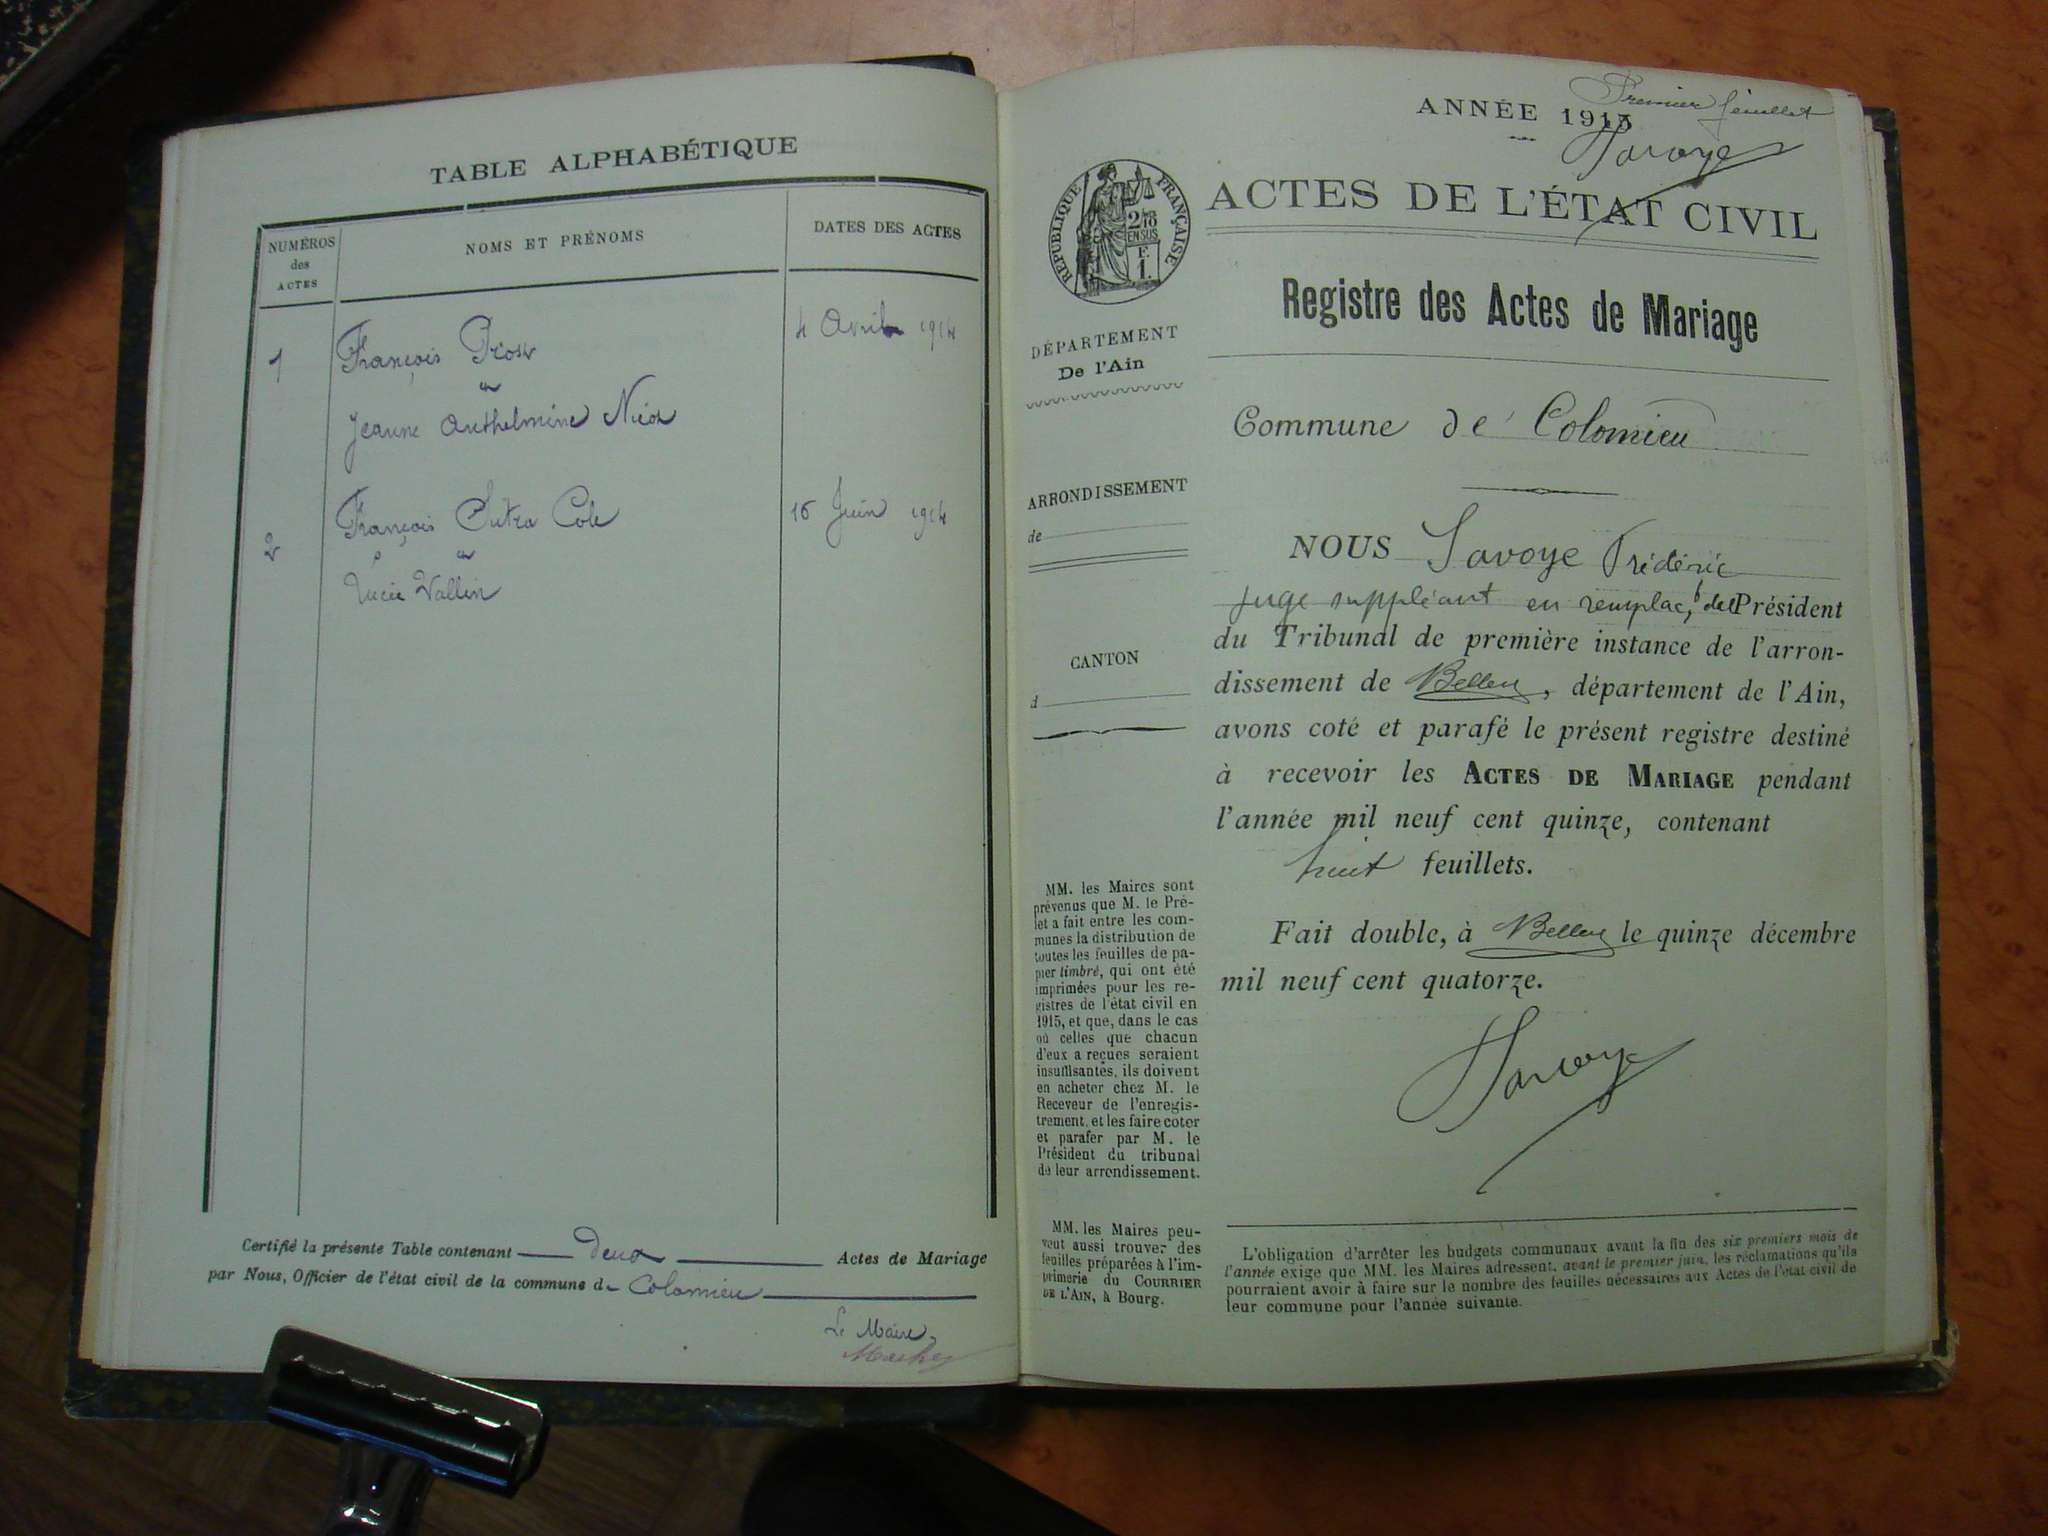 TABLE ALPHABÉTIQUE
NUMÉROS
des
ACTES
NOMS ET PRÉNOMS
DATES DES ACTES
1
François
4 Avril 1914
a
Jeanne Anthelmine
2
François Sutra Cole
16 Juin 1914
a
Lucie Vallin
Certifié la présente Table contenant deux Actes de Mariage
par Nous, Officier de l'état civil de la commune de Colomieu
Le Maire,
Premier feuillet
ANNÉE 1915
Savoye
ACTES DE L'ÉTAT CIVIL
REPUBLIQUE FRANÇAISE
2/10
EN SUS
E.
1.
Registre des Actes de Mariage
DÉPARTEMENT
De l'Ain
Commune de Colomieu
ARRONDISSEMENT
de
CANTON
d
NOUS Savoye Frédéric
juge suppléant en remplact, del Président
du Tribunal de première instance de l'arron-
dissement de Belley, département de l'Ain,
avons coté et parafé le présent registre destiné
à recevoir les ACTES DE MARIAGE pendant
l'année mil neuf cent quinze, contenant
huit feuillets.
Fait double, à Belley le quinze décembre
mil neuf cent quatorze.
Savoye
MM. les Maires sont
prévenus que M. le Pré-
fet a fait entre les com-
munes la distribution de
toutes les feuilles de pa-
pier timbré, qui ont été
imprimées pour les re-
gistres de l'état civil en
1915, et que, dans le cas
où celles que chacun
d'eux a reçues seraient
insuffisantes, ils doivent
en acheter chez M. le
Receveur de l'enregis-
trement, et les faire coter
et parafer par M. le
Président du tribunal
de leur arrondissement.
MM. les Maires peu-
vent aussi trouver des
feuilles préparées à l'im-
primerie du COURRIER
DE L'AIN, à Bourg.
L'obligation d'arrêter les budgets communaux avant la fin des six premiers mois de
l'année exige que MM. les Maires adressent, avant le premier juin, les réclamations qu'ils
pourraient avoir à faire sur le nombre des feuilles nécessaires aux Actes de l'état civil de
leur commune pour l'année suivante.